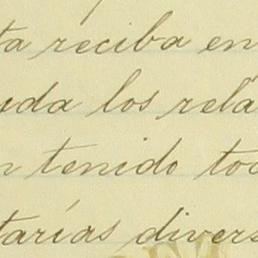 ta reciba en
uda los rela
n tenido to
tarías divers